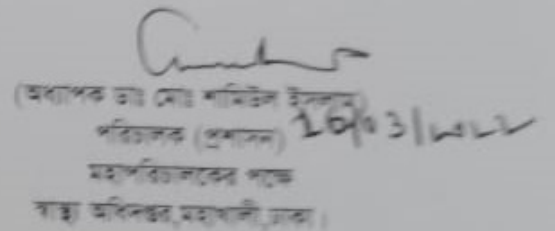 (অধ্যাপক ডাঃ মোঃ শামিউল ইসলাম)
পরিচালক (প্রশাসন) 16/03/২০২২
মহাপরিচালকের পক্ষে
স্বাস্থ্য অধিদপ্তর, মহাখালী, ঢাকা।